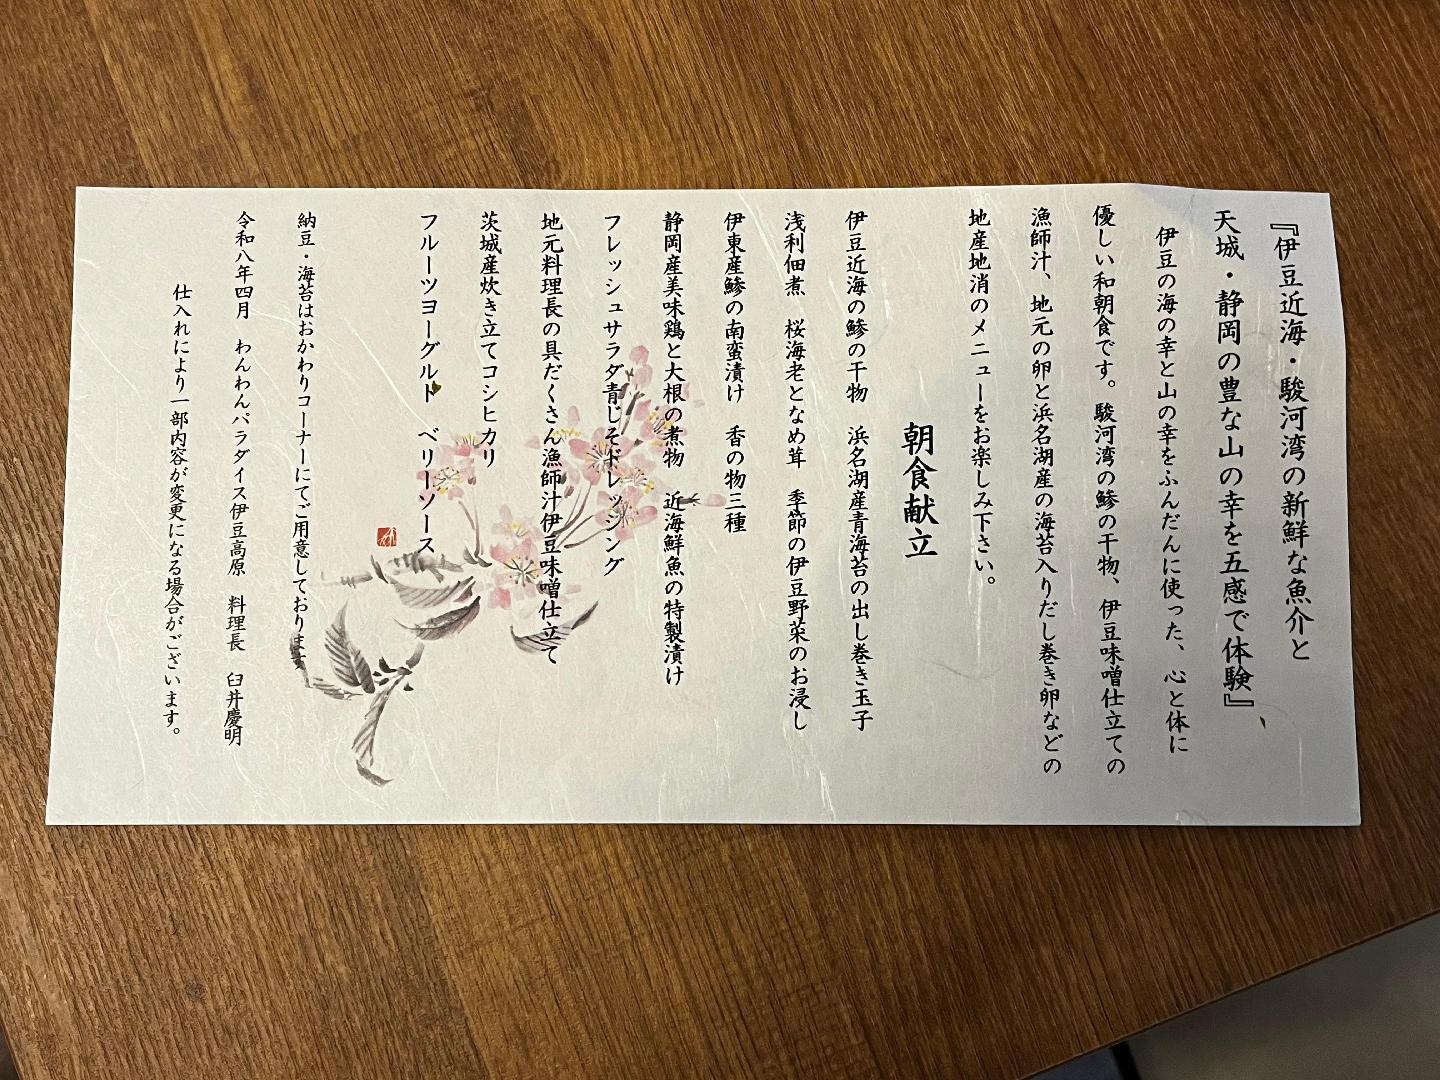 『伊豆近海・駿河湾の新鮮な魚介と
天城・静岡の豊な山の幸を五感で体験』
伊豆の海の幸と山の幸をふんだんに使った、心と体に
優しい和朝食です。駿河湾の鯵の干物、伊豆味噌仕立ての
漁師汁、地元の卵と浜名湖産の海苔入りだし巻き卵などの
地産地消のメニューをお楽しみ下さい。
朝食献立
伊豆近海の鯵の干物　浜名湖産青海苔の出し巻き玉子
浅利佃煮　桜海老となめ茸　季節の伊豆野菜のお浸し
伊東産鯵の南蛮漬け　香の物三種
静岡産美味鶏と大根の煮物　近海鮮魚の特製漬け
フレッシュサラダ青じそドレッシング
地元料理長の具だくさん漁師汁伊豆味噌仕立て
茨城産炊き立てコシヒカリ
フルーツヨーグルト　ベリーソース
納豆・海苔はおかわりコーナーにてご用意しております
令和八年四月　わんわんパラダイス伊豆高原　料理長　臼井慶明
仕入れにより一部内容が変更になる場合がございます。